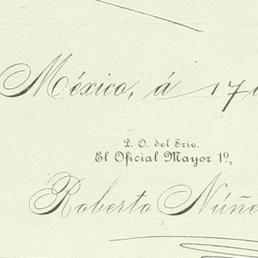 México, á 17
P. O. del Srio.
El Oficial Mayor 1º,
Roberto Núñe